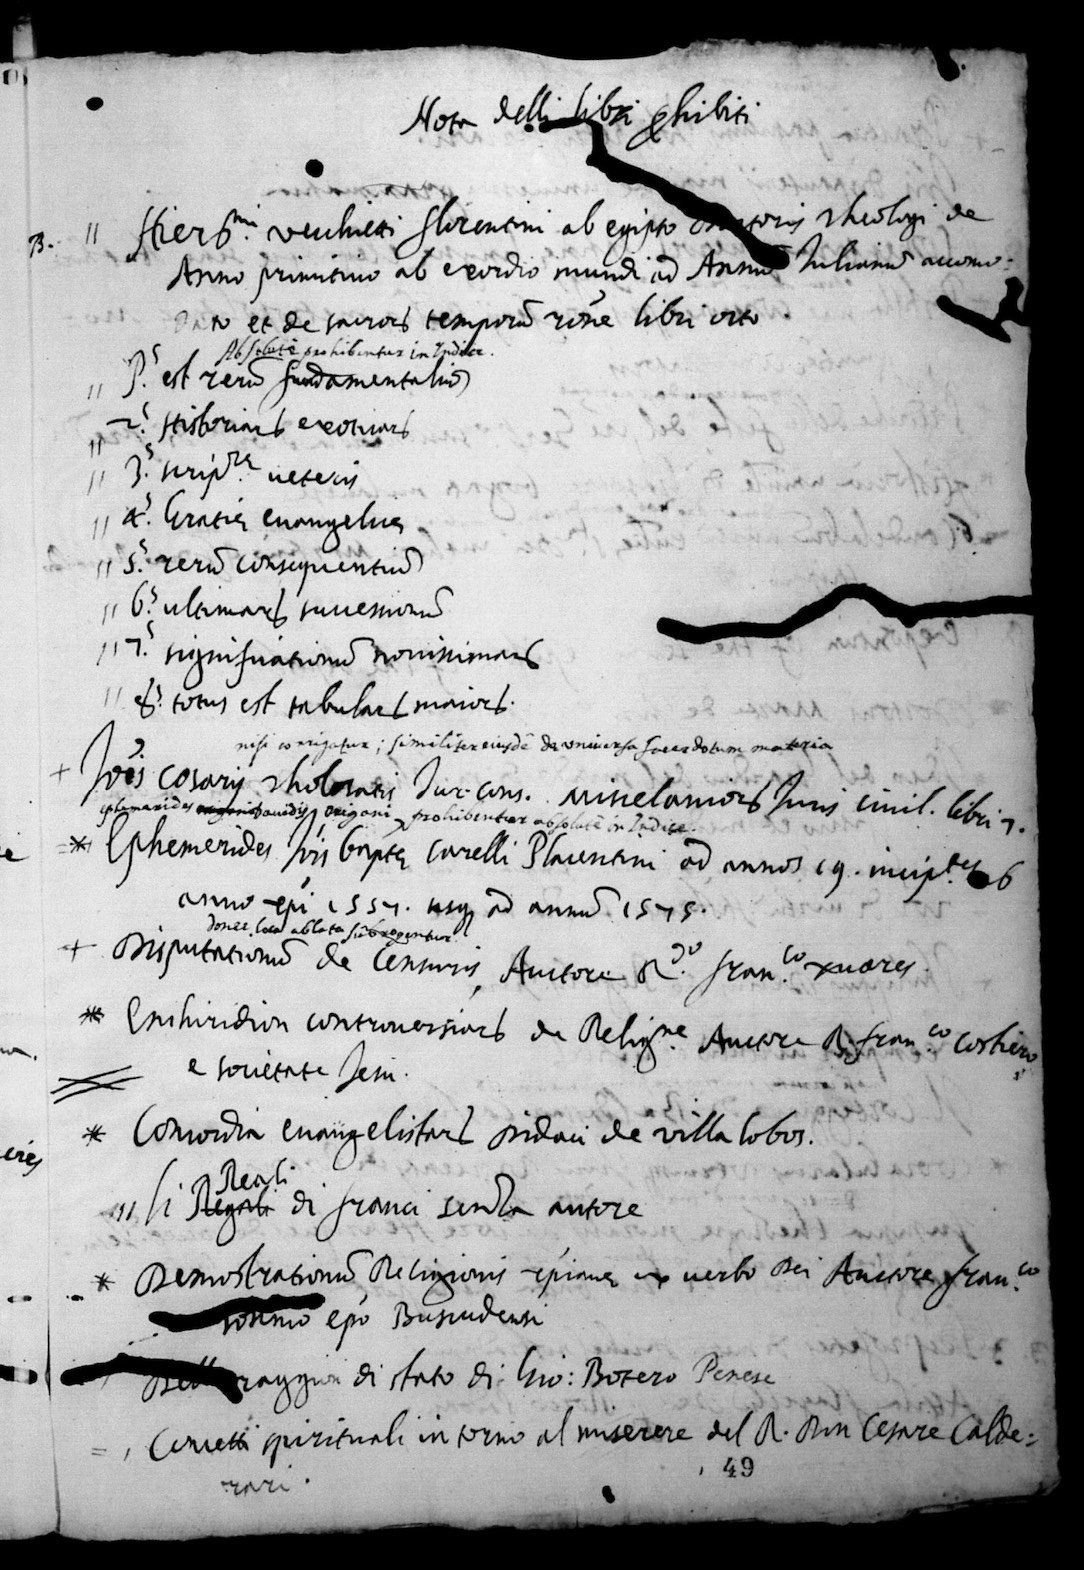 Nota delli libri ꝓhibiti
B. || Hier.mi vechietti florentini ab egipto Theologi de
Anno primitivo ab exordio mundi ad Annū Iulianū accomo=
dato et de sacrors temporū rōne libri octo
Absolutè prohibentur in Indice.
|| p.s est rerū fundamentaliū
|| 2.s Historiars exoticars
|| 3.s scrip.re veteris
|| 4.s Gratię evangelicę
|| 5.s rerū consequentiū
|| 6.s ultimars successionū
|| 7.s significationū novissimars
|| 8.s totus est tabulars maiors.
nisi corrigatur; similiter eiusdē de universa sacerdotum materia
+ Iōis Cosarij Tholosatis Jur. Cons. Miscelaniors Juris civil. libri 7.
ephemerides origani prohibentur absolutè in Indice.
=* Ephemerides Iōis bapte Carelli Placentini ad annos 19. incip.tes
anno 1557. usq ad annū 1575.
donec loca ablata subrogentur
+ Disputationū de Censuris, Auctore R.do fran.co xuares.
* Enchiridion controversiars de Relig.ne Auctore R. fran.co Costero
e societate Jesu.
* Concordia evangelistars Didaci de villa lobos.
Reali
||| li Regali di franci senza autore
* Demostrationū Religionis xpianę ex verbo Dei Auctore fran.co
epo
Della raggion di stato di Gio: Botero Benese
= , Concetti spirituali intorno al miserere del R. Don Cesare Calde=
rari.
49